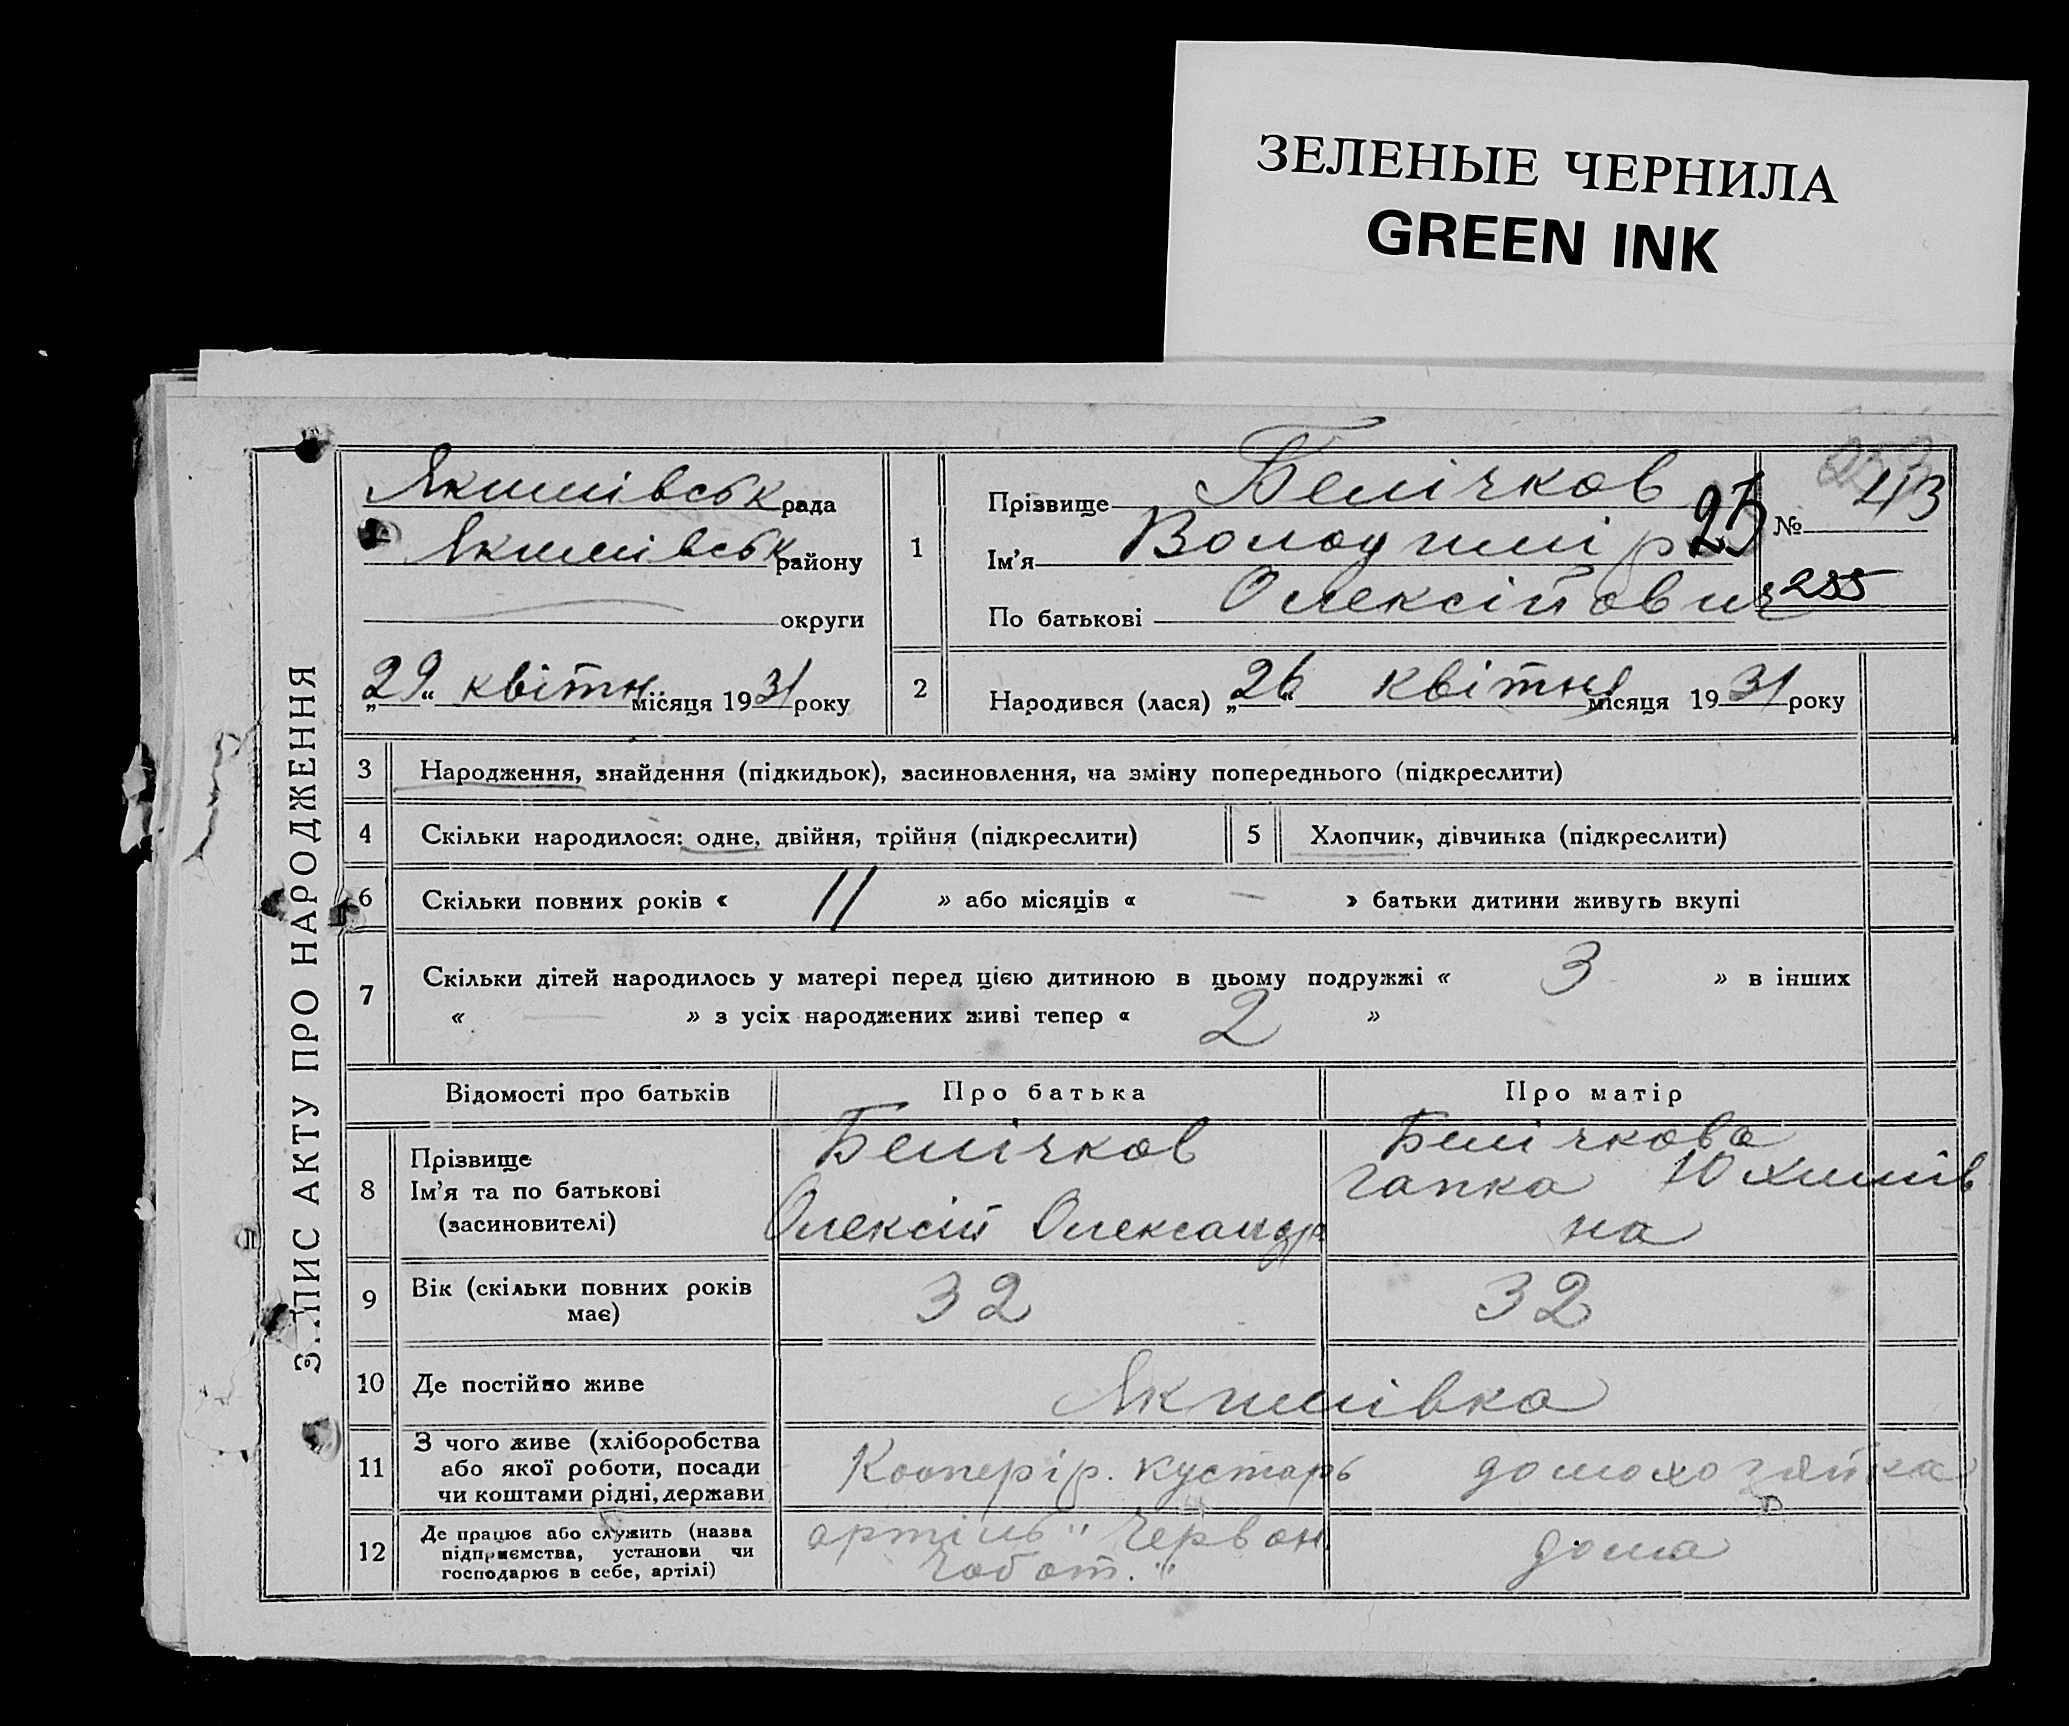 ЗЕЛЕНЫЕ ЧЕРНИЛА
GREEN INK
ПИС АКТУ ПРО НАРОДЖЕННЯ
Якимівськ рада
Якимівськ району
округи
„29“ квітн місяця 1931 року
1
Прізвище Белічков
Ім’я Володимір
По батькові Олексійович
25
№ 43
255
2
Народився (лася) „26“ квітня місяця 1931 року
3 Народження, знайдення (підкидьок), засиновлення, на зміну попереднього (підкреслити)
4 Скільки народилося: одне, двійня, трійня (підкреслити)
5 Хлопчик, дівчинка (підкреслити)
6 Скільки повних років « 11 » або місяців « — » батьки дитини живуть вкупі
7 Скільки дітей народилось у матері перед цією дитиною в цьому подружжі « 3 » в інших
« — » з усіх народжених живі тепер « 2 »
Відомості про батьків Про батька Про матір
8 Прізвище
Ім’я та по батькові
(засиновителі)
Белічков
Олексій Олександр
Белічкова
Гапка Юхимів
на
9 Вік (скільки повних років
має)
32 32
10 Де постійно живе Якимівка
11 З чого живе (хліборобства
або якої роботи, посади
чи коштами рідні, держави
Коопері р. кустарь домохозяйка
12 Де працює або служить (назва
підприємства, установи чи
господарює в себе, артілі)
артіль „Червон.
Чобот.“
дома